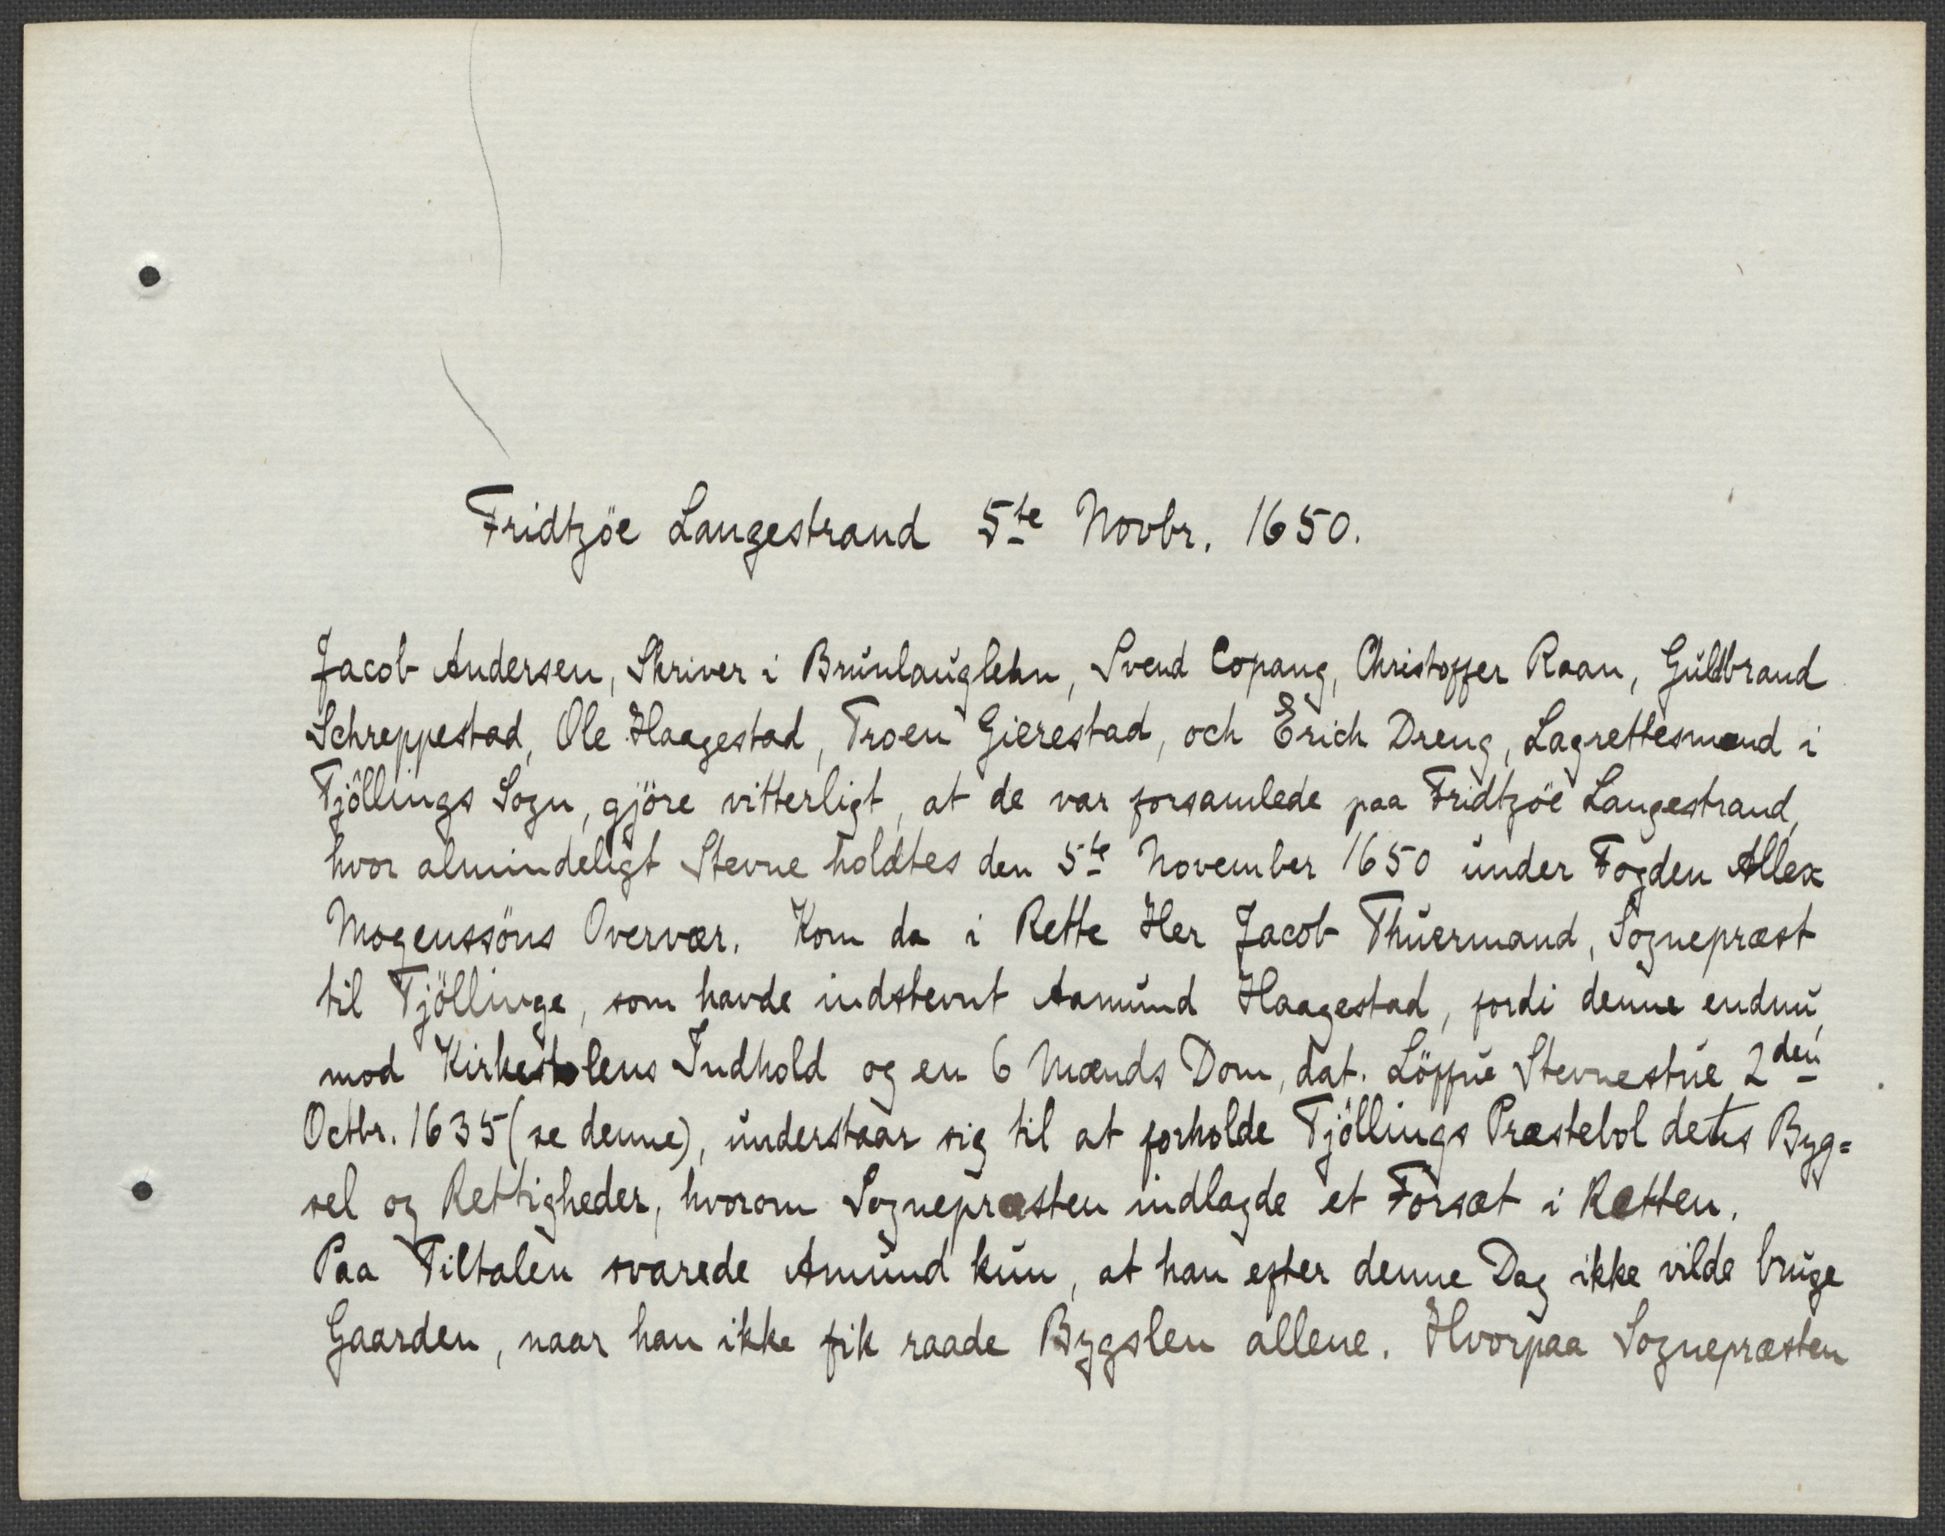 Fridtzöe Langestrand 5te Novbr. 1650.
Jacob Andersen, Skriver i Brunlauglehn, Svend Copang, Christoffer Raan, Guldbrand
Schreppestad, Ole Haagestad, Troen Gierestad, och Erich Dreng, Lagrettesmænd i
Tjöllings Sogn, gjöre vitterligt, at de var forsamlede paa Fridtzöe Langestrand,
hvor almindeligt Stevne holdtes den 5te November 1650 under Fogden Allex
Mogenssöns Overvær. Kom da i Rette Her Jacob Thuermand, Sognepræst
til Tjöllinge, som havde indstevnt Aamund Haagestad, fordi denne endnu,
mod Kirkestolens Indhold og en 6 Mænds Dom, dat. Löffue Stevnestue 2den
Octbr. 1635 (se denne), understaar sig til at forholde Tjöllings Præstebol dets Byg=
sel og Rettigheder, hvorom Sognepræsten indlagde et Forsæt i Retten.
Paa Tiltalen svarede Amund kun, at han efter denne Dag ikke vilde bruge
Gaarden, naar han ikke fik raade Bygslen allene. Hvorpaa Sognepræsten